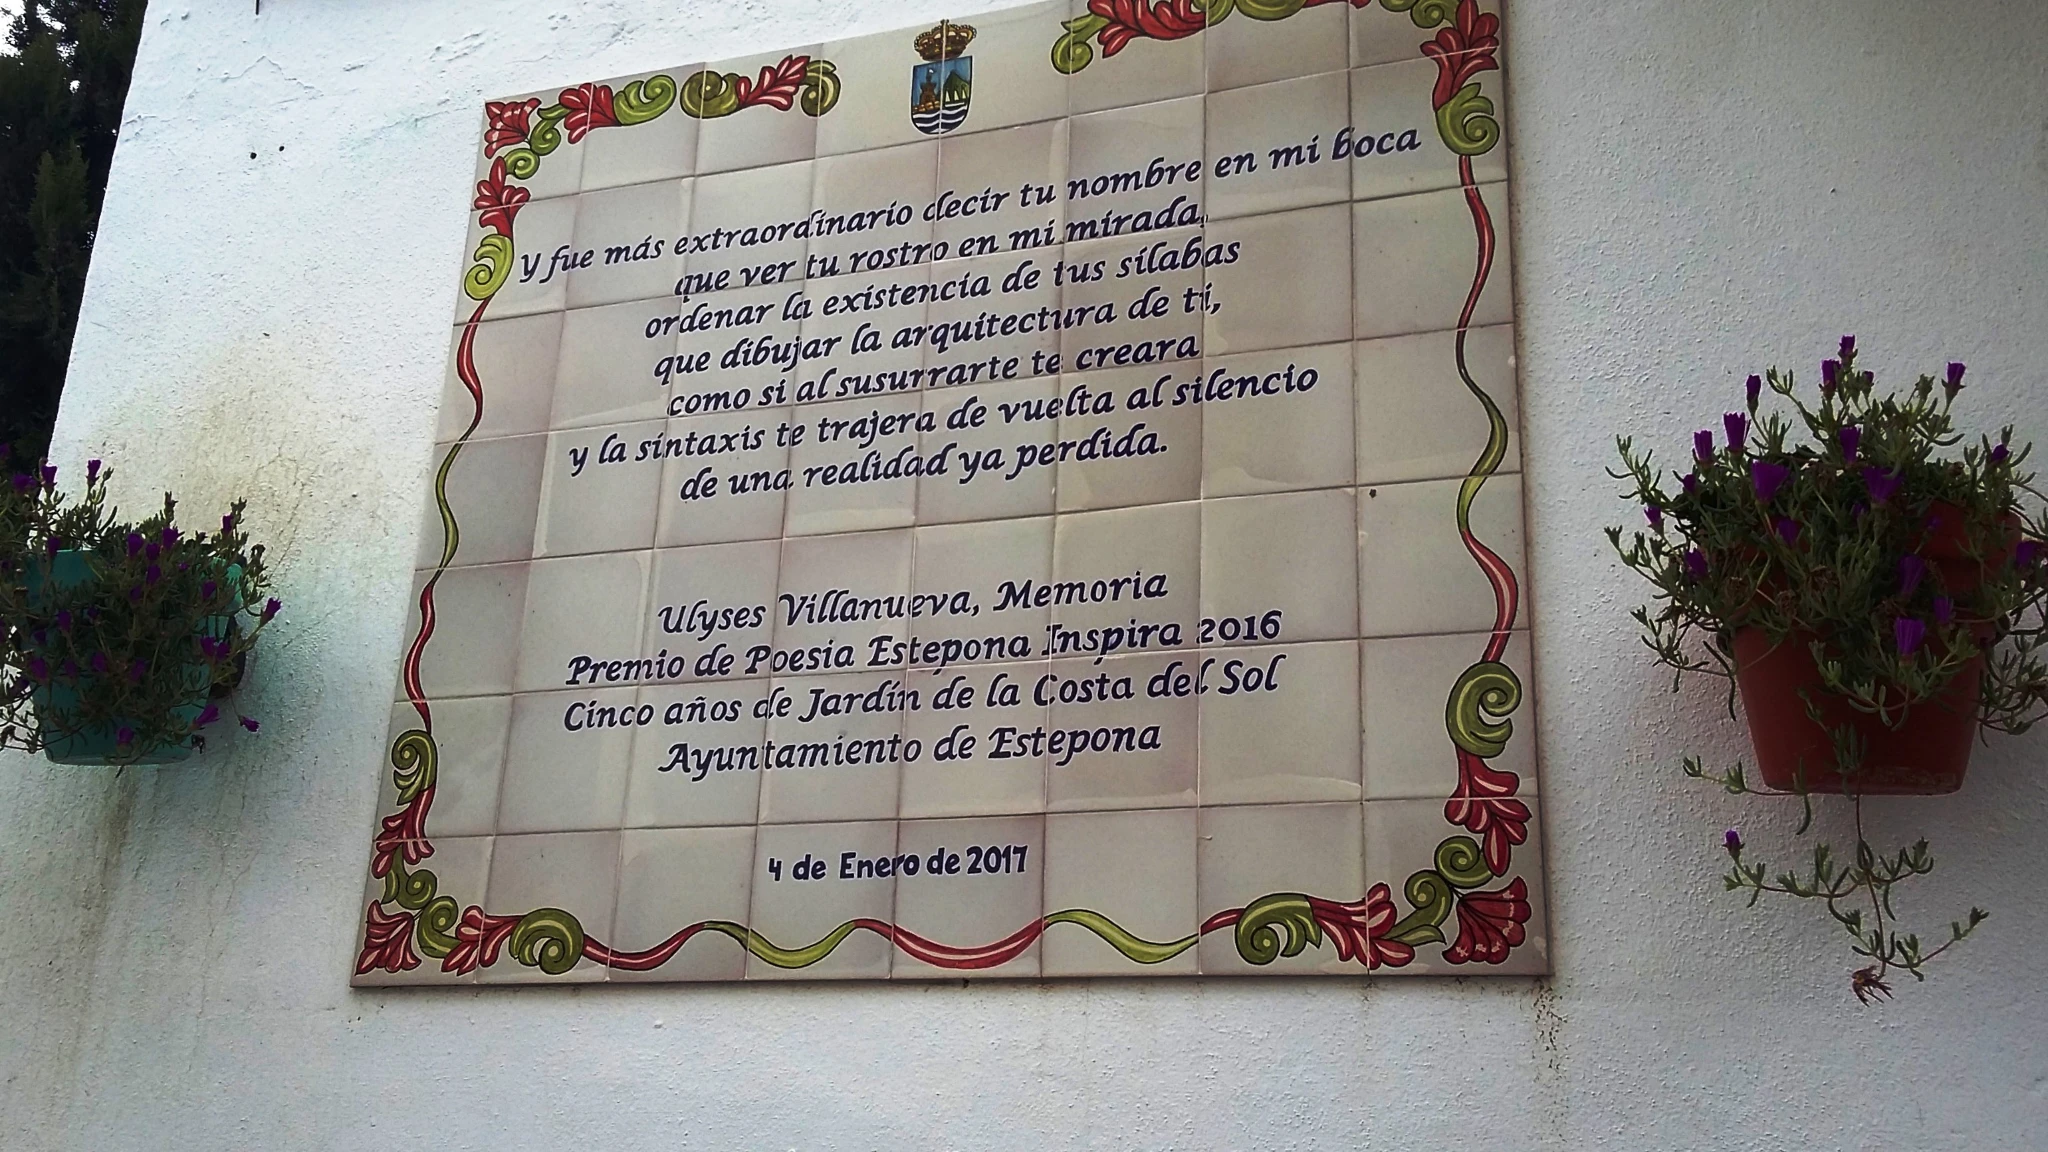 Y fue más extraordinario decir tu nombre en mi boca
que ver tu rostro en mi mirada,
ordenar la existencia de tus sílabas
que dibujar la arquitectura de ti,
como si al susurrarte te creara
y la sintaxis te trajera de vuelta al silencio
de una realidad ya perdida.
Ulyses Villanueva, Memoria
Premio de Poesia Estepona Inspira 2016
Cinco años de Jardín de la Costa del Sol
Ayuntamiento de Estepona
4 de Enero de 2017